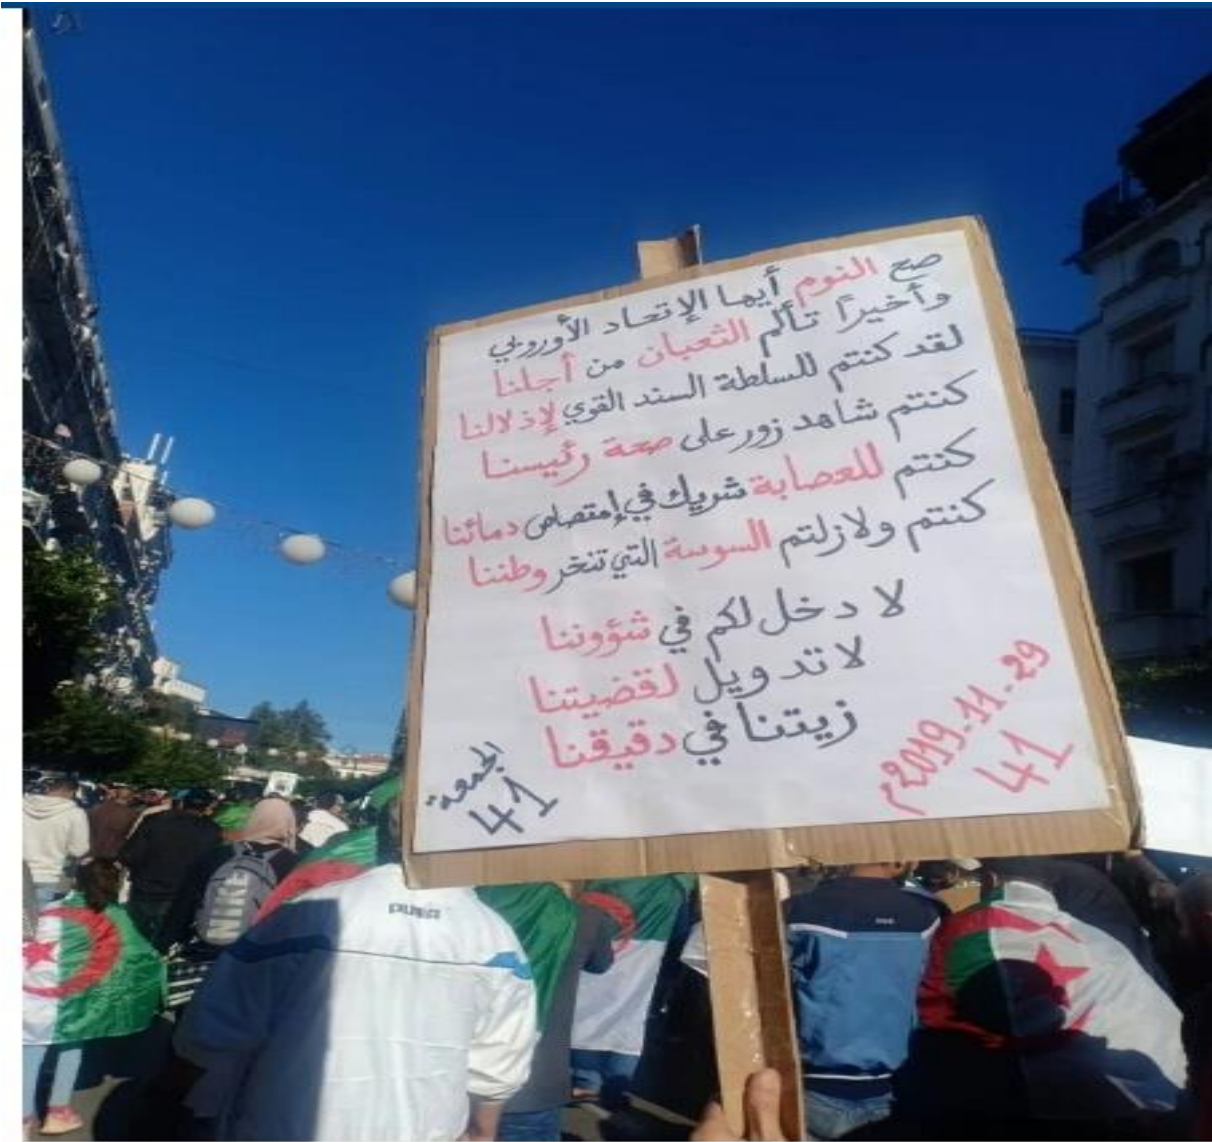 صح النوم أيها الإتحاد الأوروبي
وأخيرًا تألم الثعبان من أجلنا
لقد كنتم للسلطة السند القوي لإذلالنا
كنتم شاهد زور على صحة رئيسنا
كنتم للعصابة شريك في إمتصاص دمائنا
كنتم ولازلتم السوسة التي تنخر وطننا
لا دخل لكم في شؤوننا
لا تدويل لقضيتنا
زيتنا في دقيقنا
29-11-2019م
41
الجمعة
41
PUMA